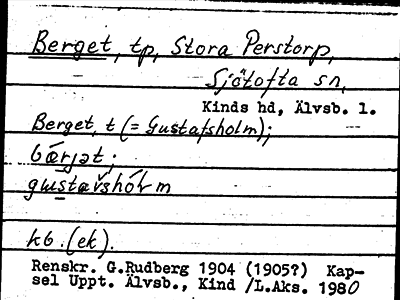 Berget, tp, Stora Perstorp,
Sjötofta sn,
Kinds hd, Älvsb. l.
Berget, t (= Gustafsholm);
bǽrjət;
gustavshólm
kb. (ek).
Renskr. G.Rudberg 1904 (1905?) Kap-
sel Uppt. Älvsb., Kind /L.Aks. 1980